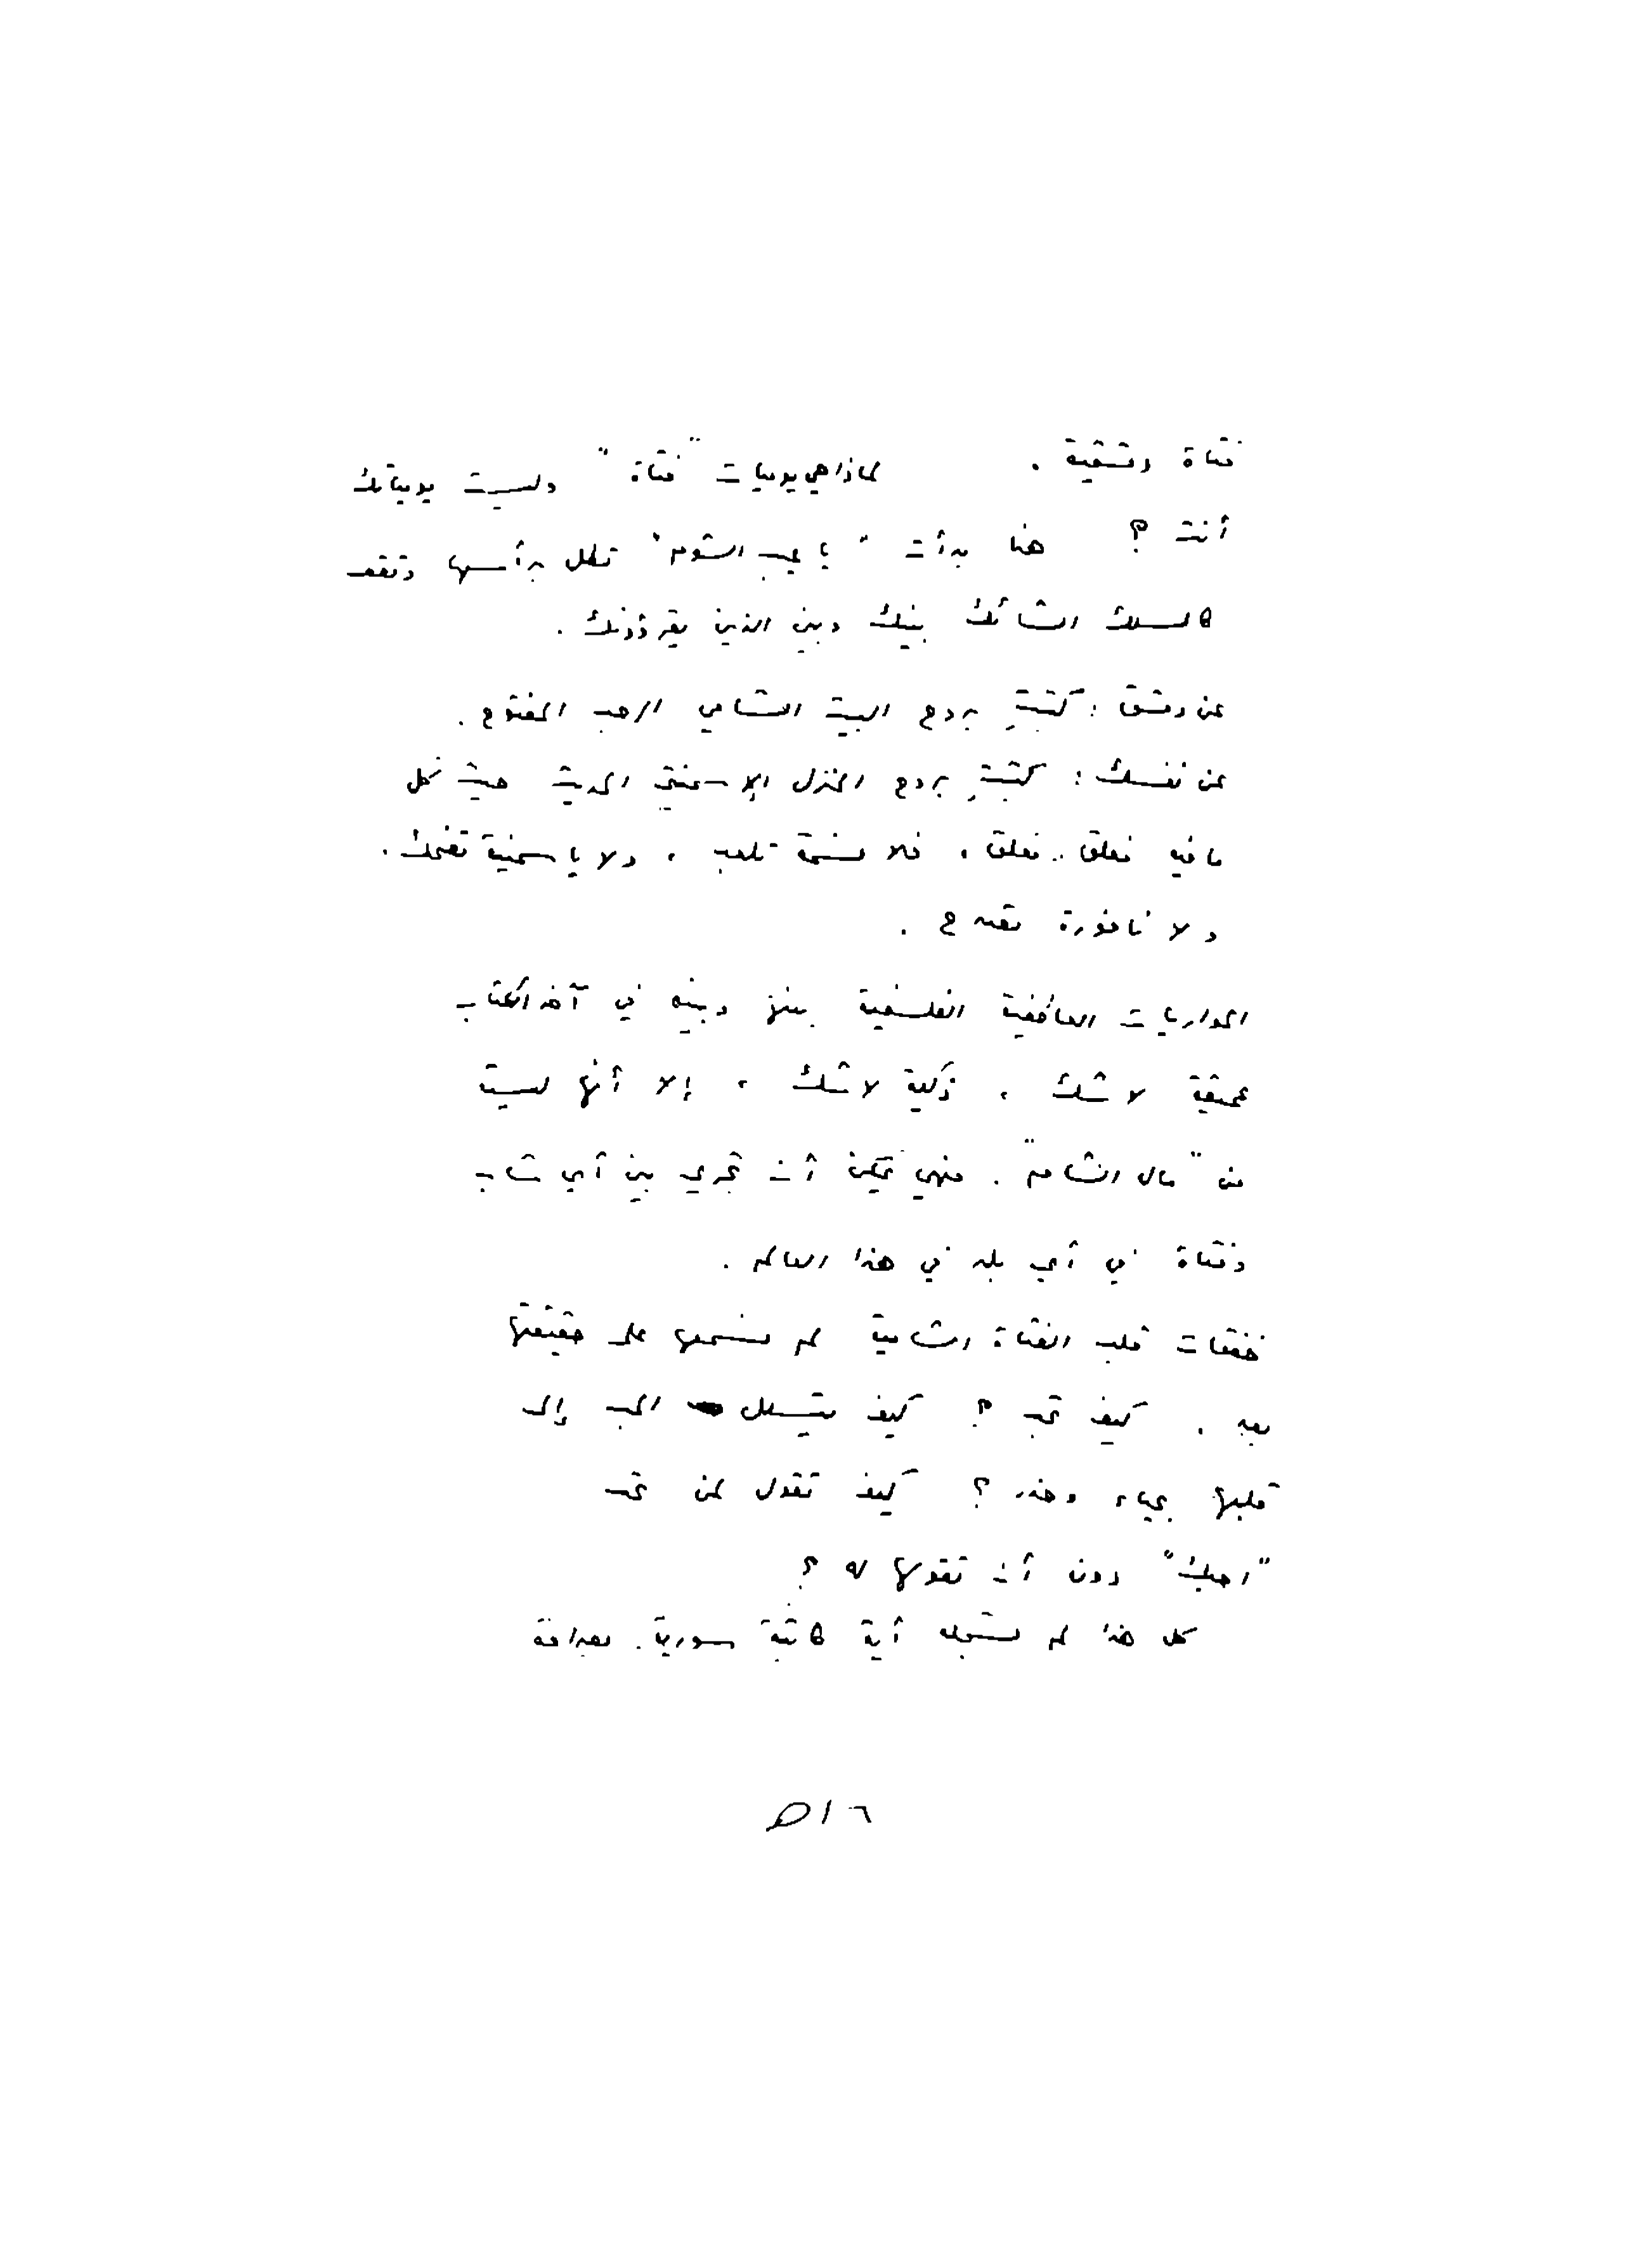 فتاة دمشقية . لماذا هي يوميات "فتاة" وليست يومياتك
أنت ؟ هنا بدأت "يا عيب الشوم" تطل برأسها وتقف
كالسلك الشائك بينك وبين الذين يقرؤونك .
عن دمشق : كتبتِ بروح البيت الشامي الرحب المفتوح .
عن نفسك : كتبتِ بروح المنزل الإسمنتي الحديث حيث كل
ما فيه مغلق .. مغلق ، فلا نسمة تلعب ، ولا ياسمينة تضحك .
ولا نافورة تصدح .
الحواريات العاطفية الفلسفية بينها وبينه في آخر الكتاب
عميقة لا شك ، ذكية لا شك ، إلا أنها ليست
من "مال الشام" . فهي يمكن أن تجري بين أي شاب
وفتاة في أي بلد في هذا العالم .
خفقات قلب الفتاة الشامية لم نسمعها على حقيقتها
بعد . كيف تحب ؟ كيف يتسلل الحب إلى
قلبها بحياء وخفر ؟ كيف تقول لمن تحب
"احبك" دون أن تقولها له ؟
كل هذا لم تسجله أية كاتبة سورية . بصراحة
١٦